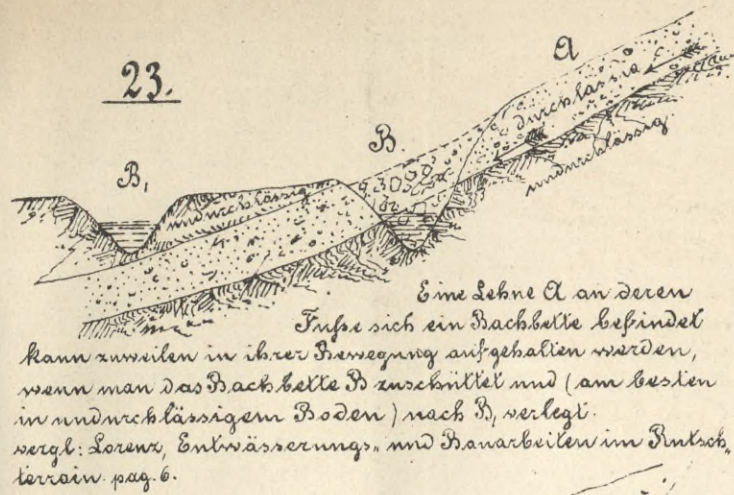 23.
A
durchlässig
B.
undurchlässig
B,
undurchlässig
Eine Lehne A an deren
Fuße sich ein Bachbette befindet
kann zuweilen in ihrer Bewegung aufgehalten werden,
wenn man das Bachbette B zuschüttet und (am besten
in undurchlässigem Boden) nach B, verlegt.
vergl: Lorenz, Entwässerungs- und Bauarbeiten im Rutsch-
terrain. pag. 6.